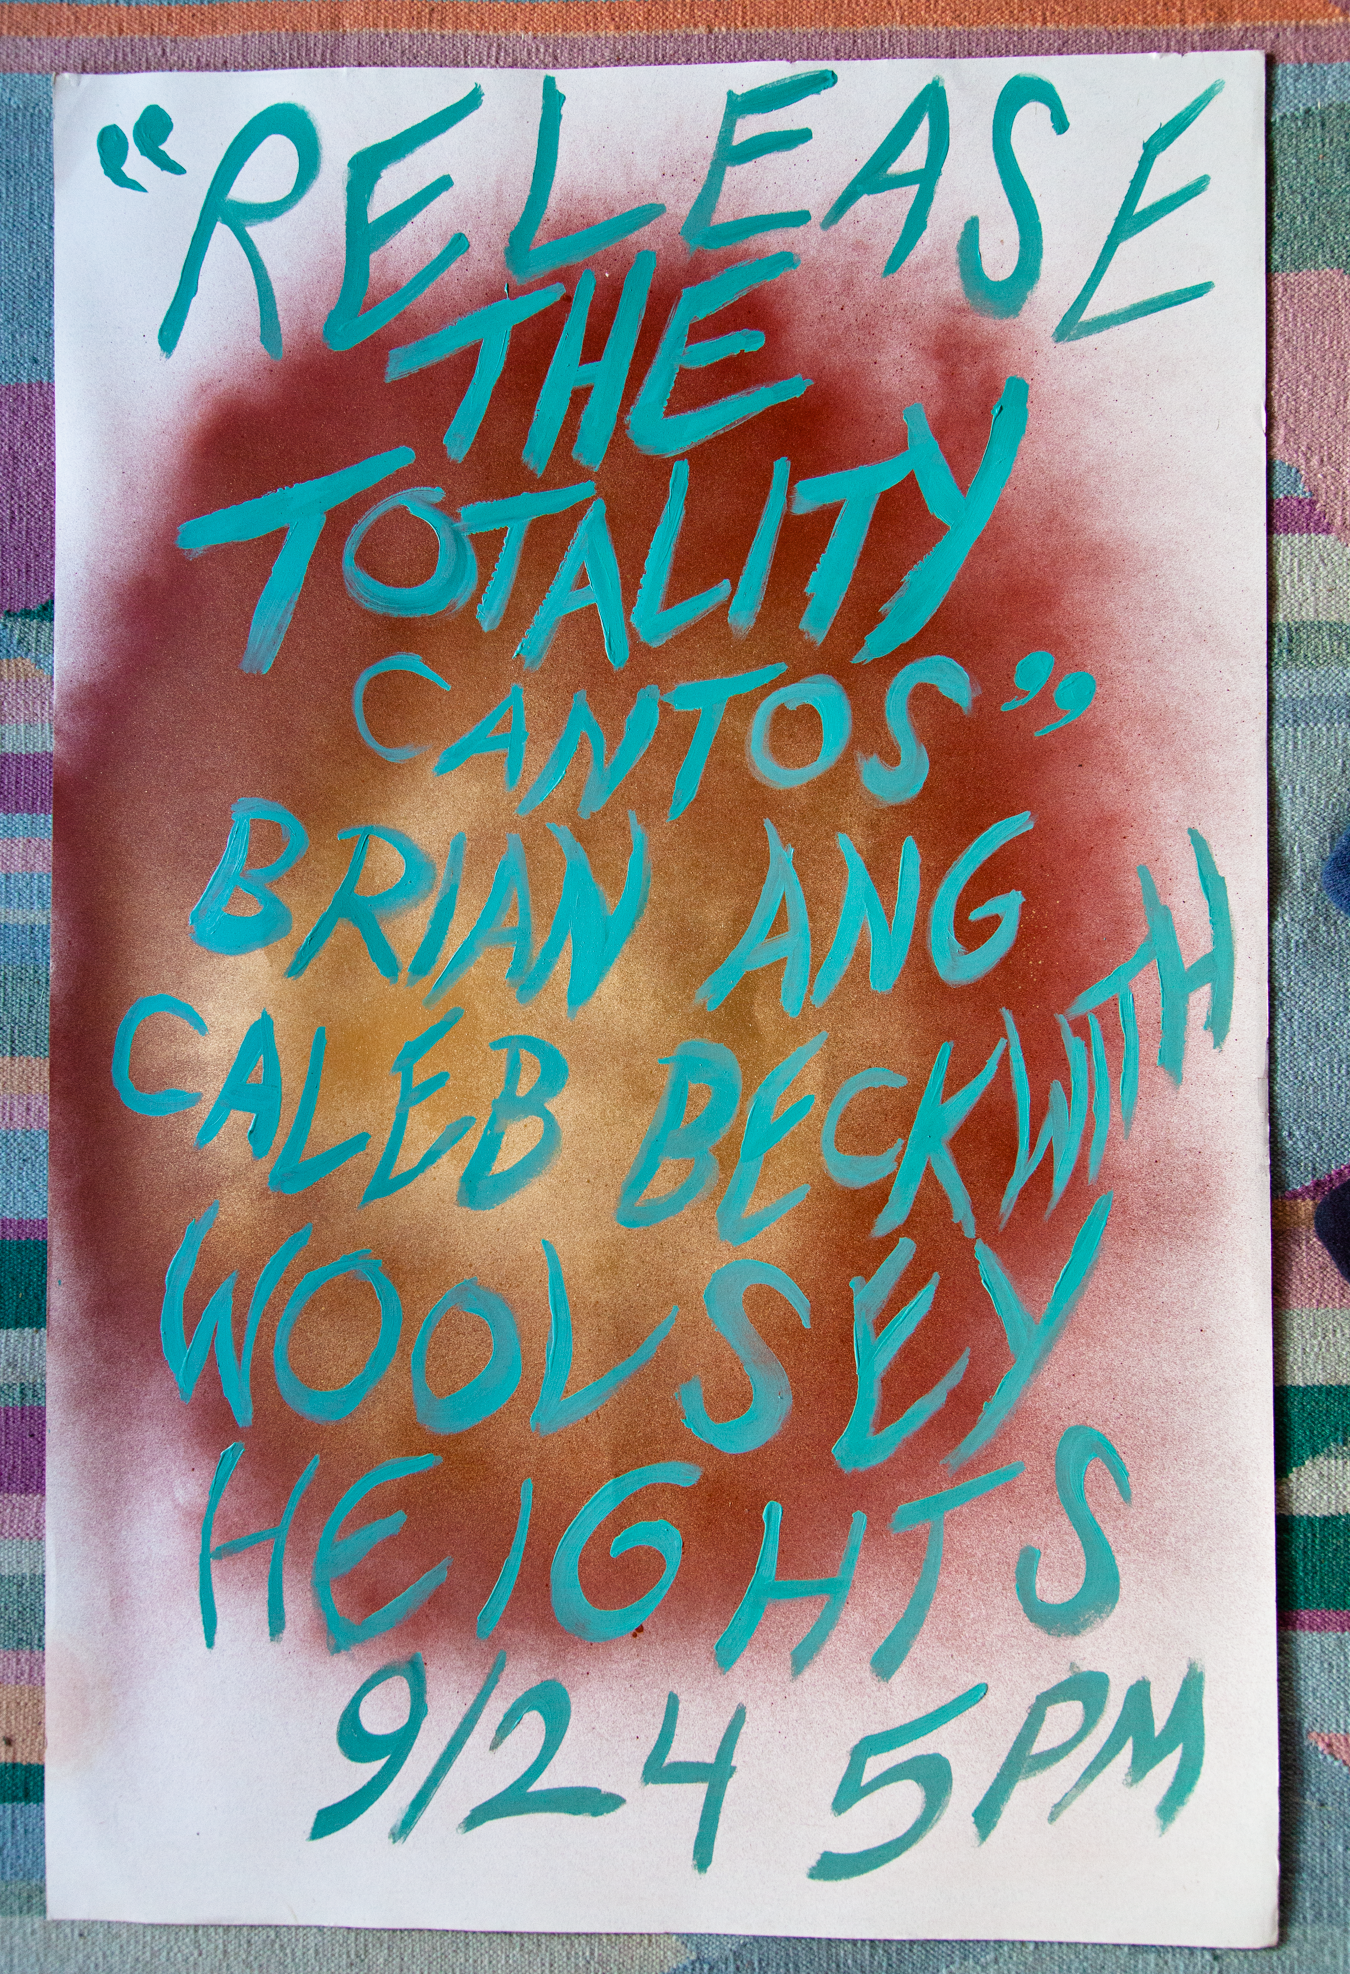 “RELEASE
THE
TOTALITY
CANTOS”
BRIAN ANG
CALEB BECKWITH
WOOLSEY
HEIGHTS
9/24 5PM